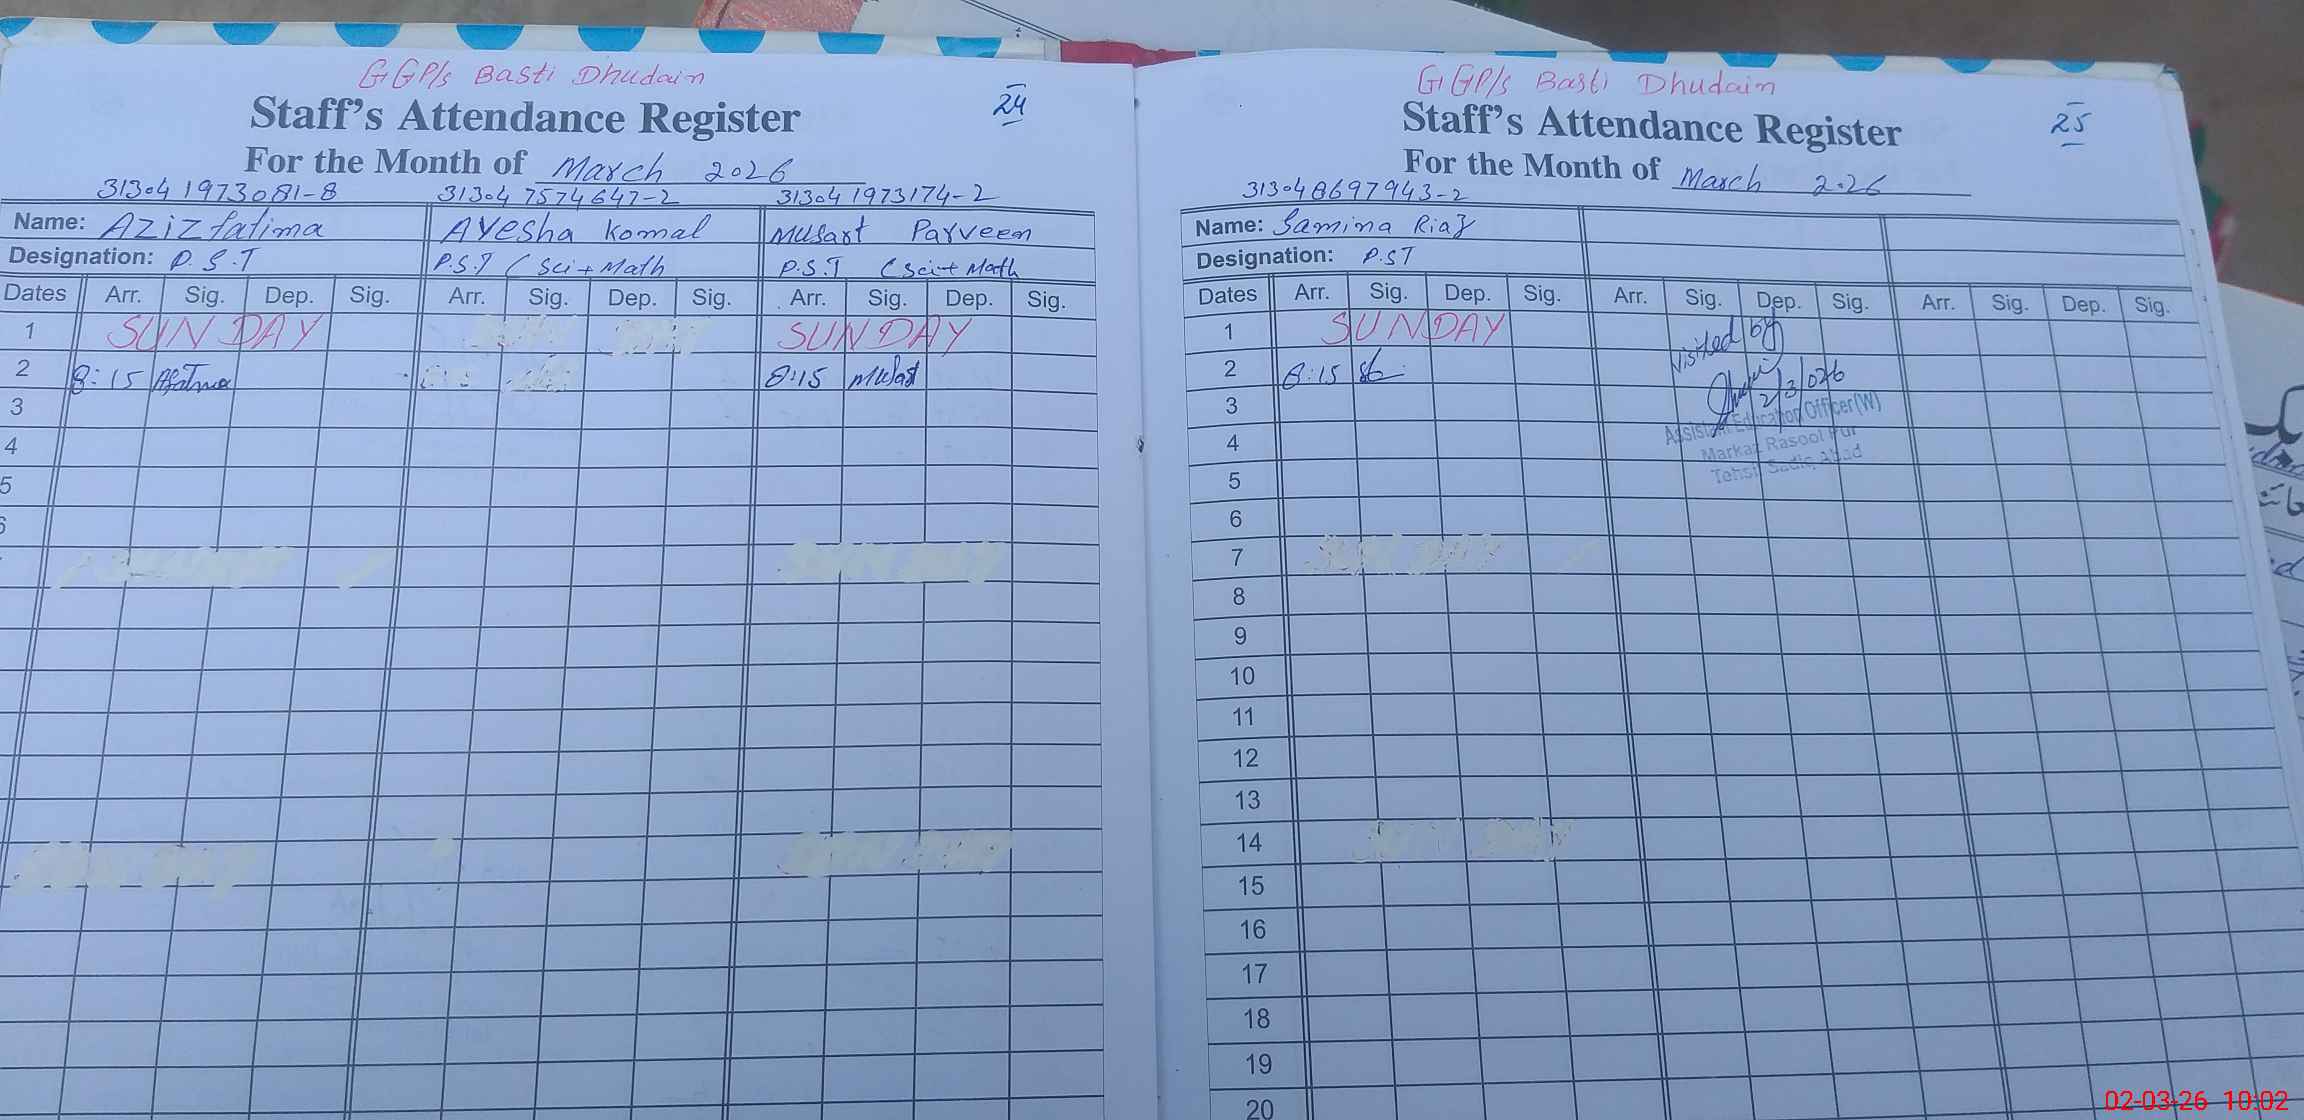 GGP/s Basti Dhudain
24
Staff's Attendance Register
For the Month of March 2026
31304 1973081-8 31304 7574647-2 31304 1973174-2
Name: Aziz fatima Ayesha Komal Musart Parveen
Designation: P.S.T P.S.T (Sci+Math P.S.T (Sci+Math
Dates Arr. Sig. Dep. Sig. Arr. Sig. Dep. Sig. Arr. Sig. Dep. Sig.
1 SUNDAY SUNDAY
2 8:15 8:15 Musart
3
4
5
6
GGP/s Basti Dhudain
25
Staff's Attendance Register
For the Month of March 2026
31304 8697943-2
Name: Samina Riaz
Designation: P.ST
Dates Arr. Sig. Dep. Sig. Arr. Sig. Dep. Sig. Arr. Sig. Dep. Sig.
1 SUNDAY
visited by
2 8:15
2/3/026
3
Assistant Education Officer (W)
4
Markaz Rasool Pur
5
Tehsil Sadiq Abad
6
7
8
9
10
11
12
13
14
15
16
17
18
19
20
02-03-26 10:02